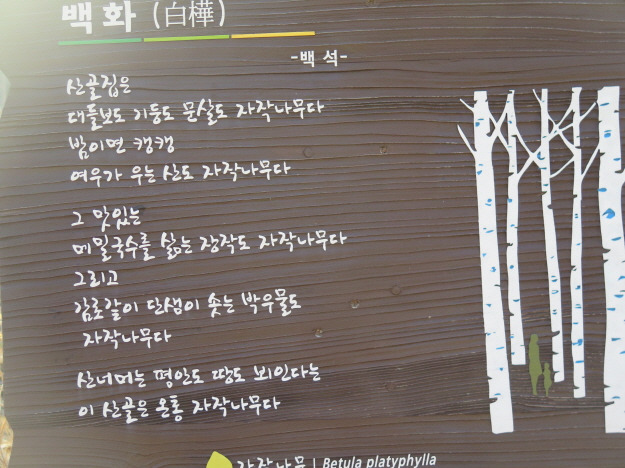 백화 (白樺)
-백 석-
산골집은
대들보도 기둥도 문살도 자작나무다
밤이면 캥캥
여우가 우는 산도 자작나무다
그 맛있는
메밀국수를 삶는 장작도 자작나무다
그리고
감로같이 단샘이 솟는 박우물도
자작나무다
산너머는 평안도 땅도 뵈인다는
이 산골은 온통 자작나무다
자작나무 | Betula platyphylla